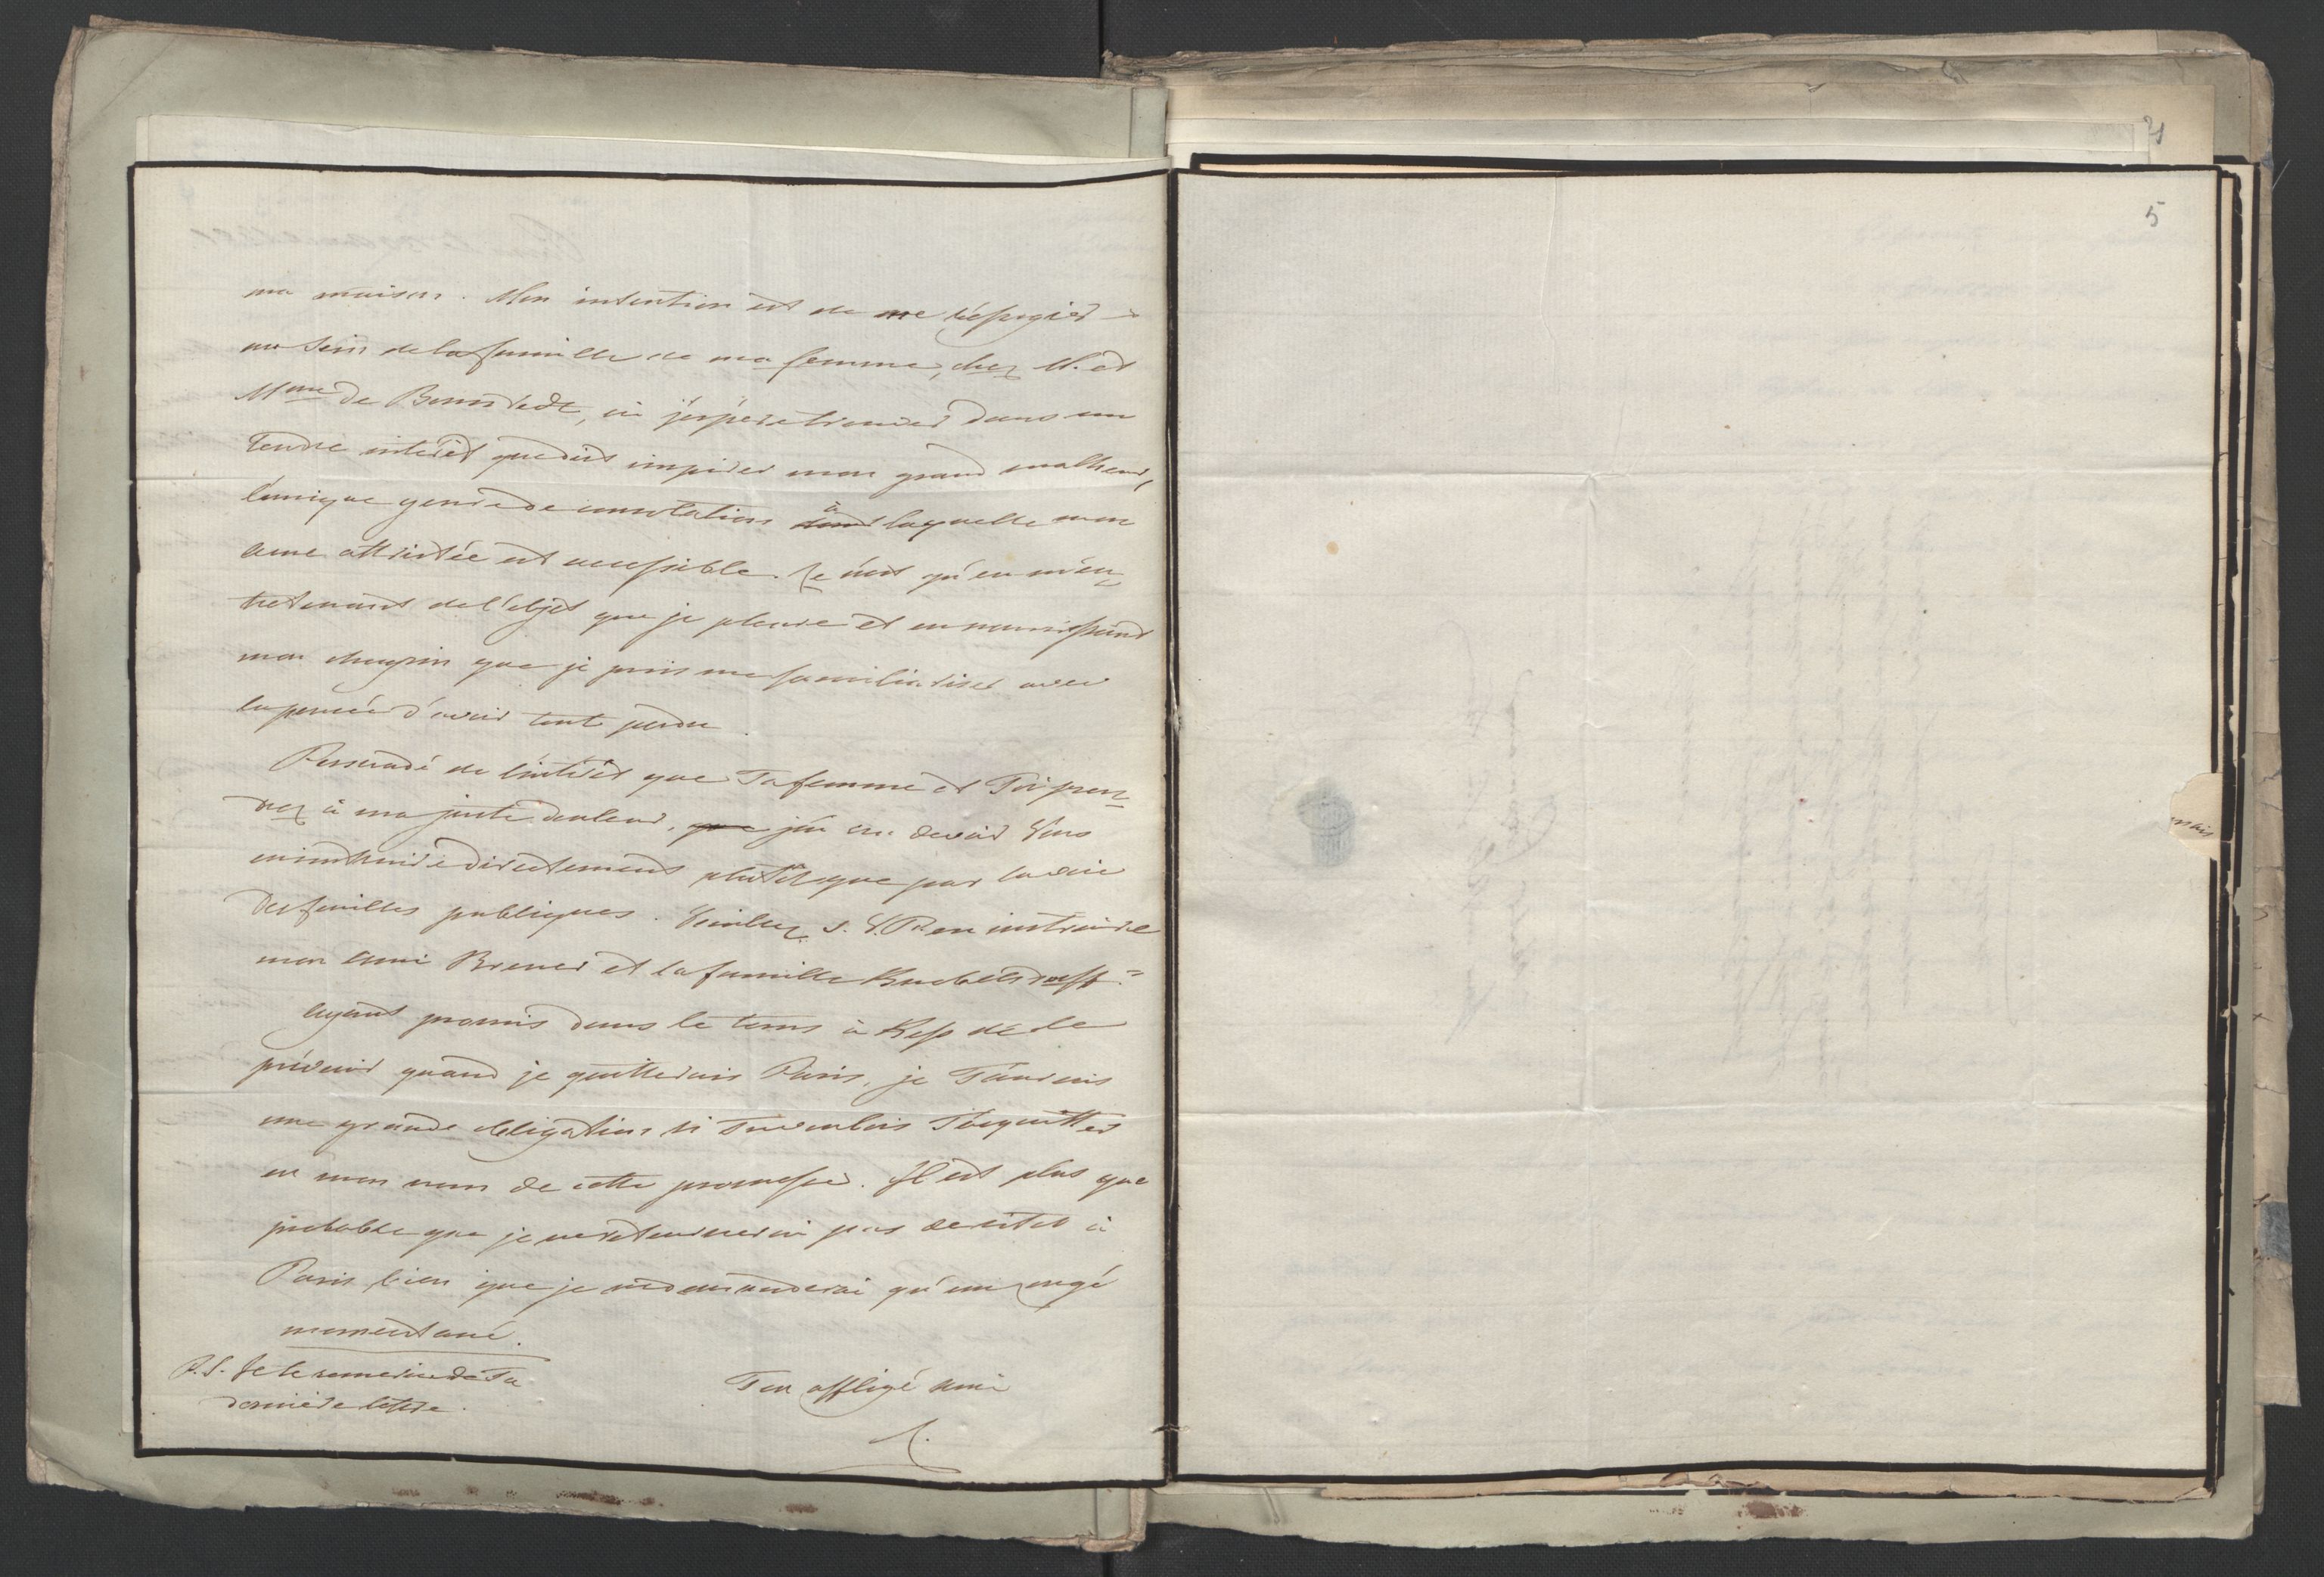 ma maison. Mon intention est de me réfugier
au sein de la famille de ma femme, chez M. et
Mme de Bernstedt, où j'espère trouver dans un
tendre intérêt que doit inspirer mon grand malheur,
l'unique genre de consolation à laquelle mon
ame attristée est accessible. Ce n'est qu'en m'en-
tretenant de l'objet que je pleure et en nourrissant
mon chagrin que je puis me familiariser avec
la pensée d'avoir tout perdu.
Persuadé de l'intérêt que Ta femme et Toi pren-
drez à ma juste douleur, que j'ai cru devoir Vous
en instruire directement plutôt que par la voie
des feuilles publiques. Veuillez s. V. P. en instruire
mon ami Brener et la famille Knobelsdorff.
Ayant promis dans le tems à de le
prévenir quand je quitterais Paris, je T'aurais
une grande obligation si Tu voulais T'acquitter
en mon nom de cette promesse. Il est plus que
probable que je ne retournerai pas de sitot à
Paris bien que je ne demanderai qu'un congé
momentané.
Ton affligé ami
P.S. Je te remercie de Ta
dernière lettre.
5